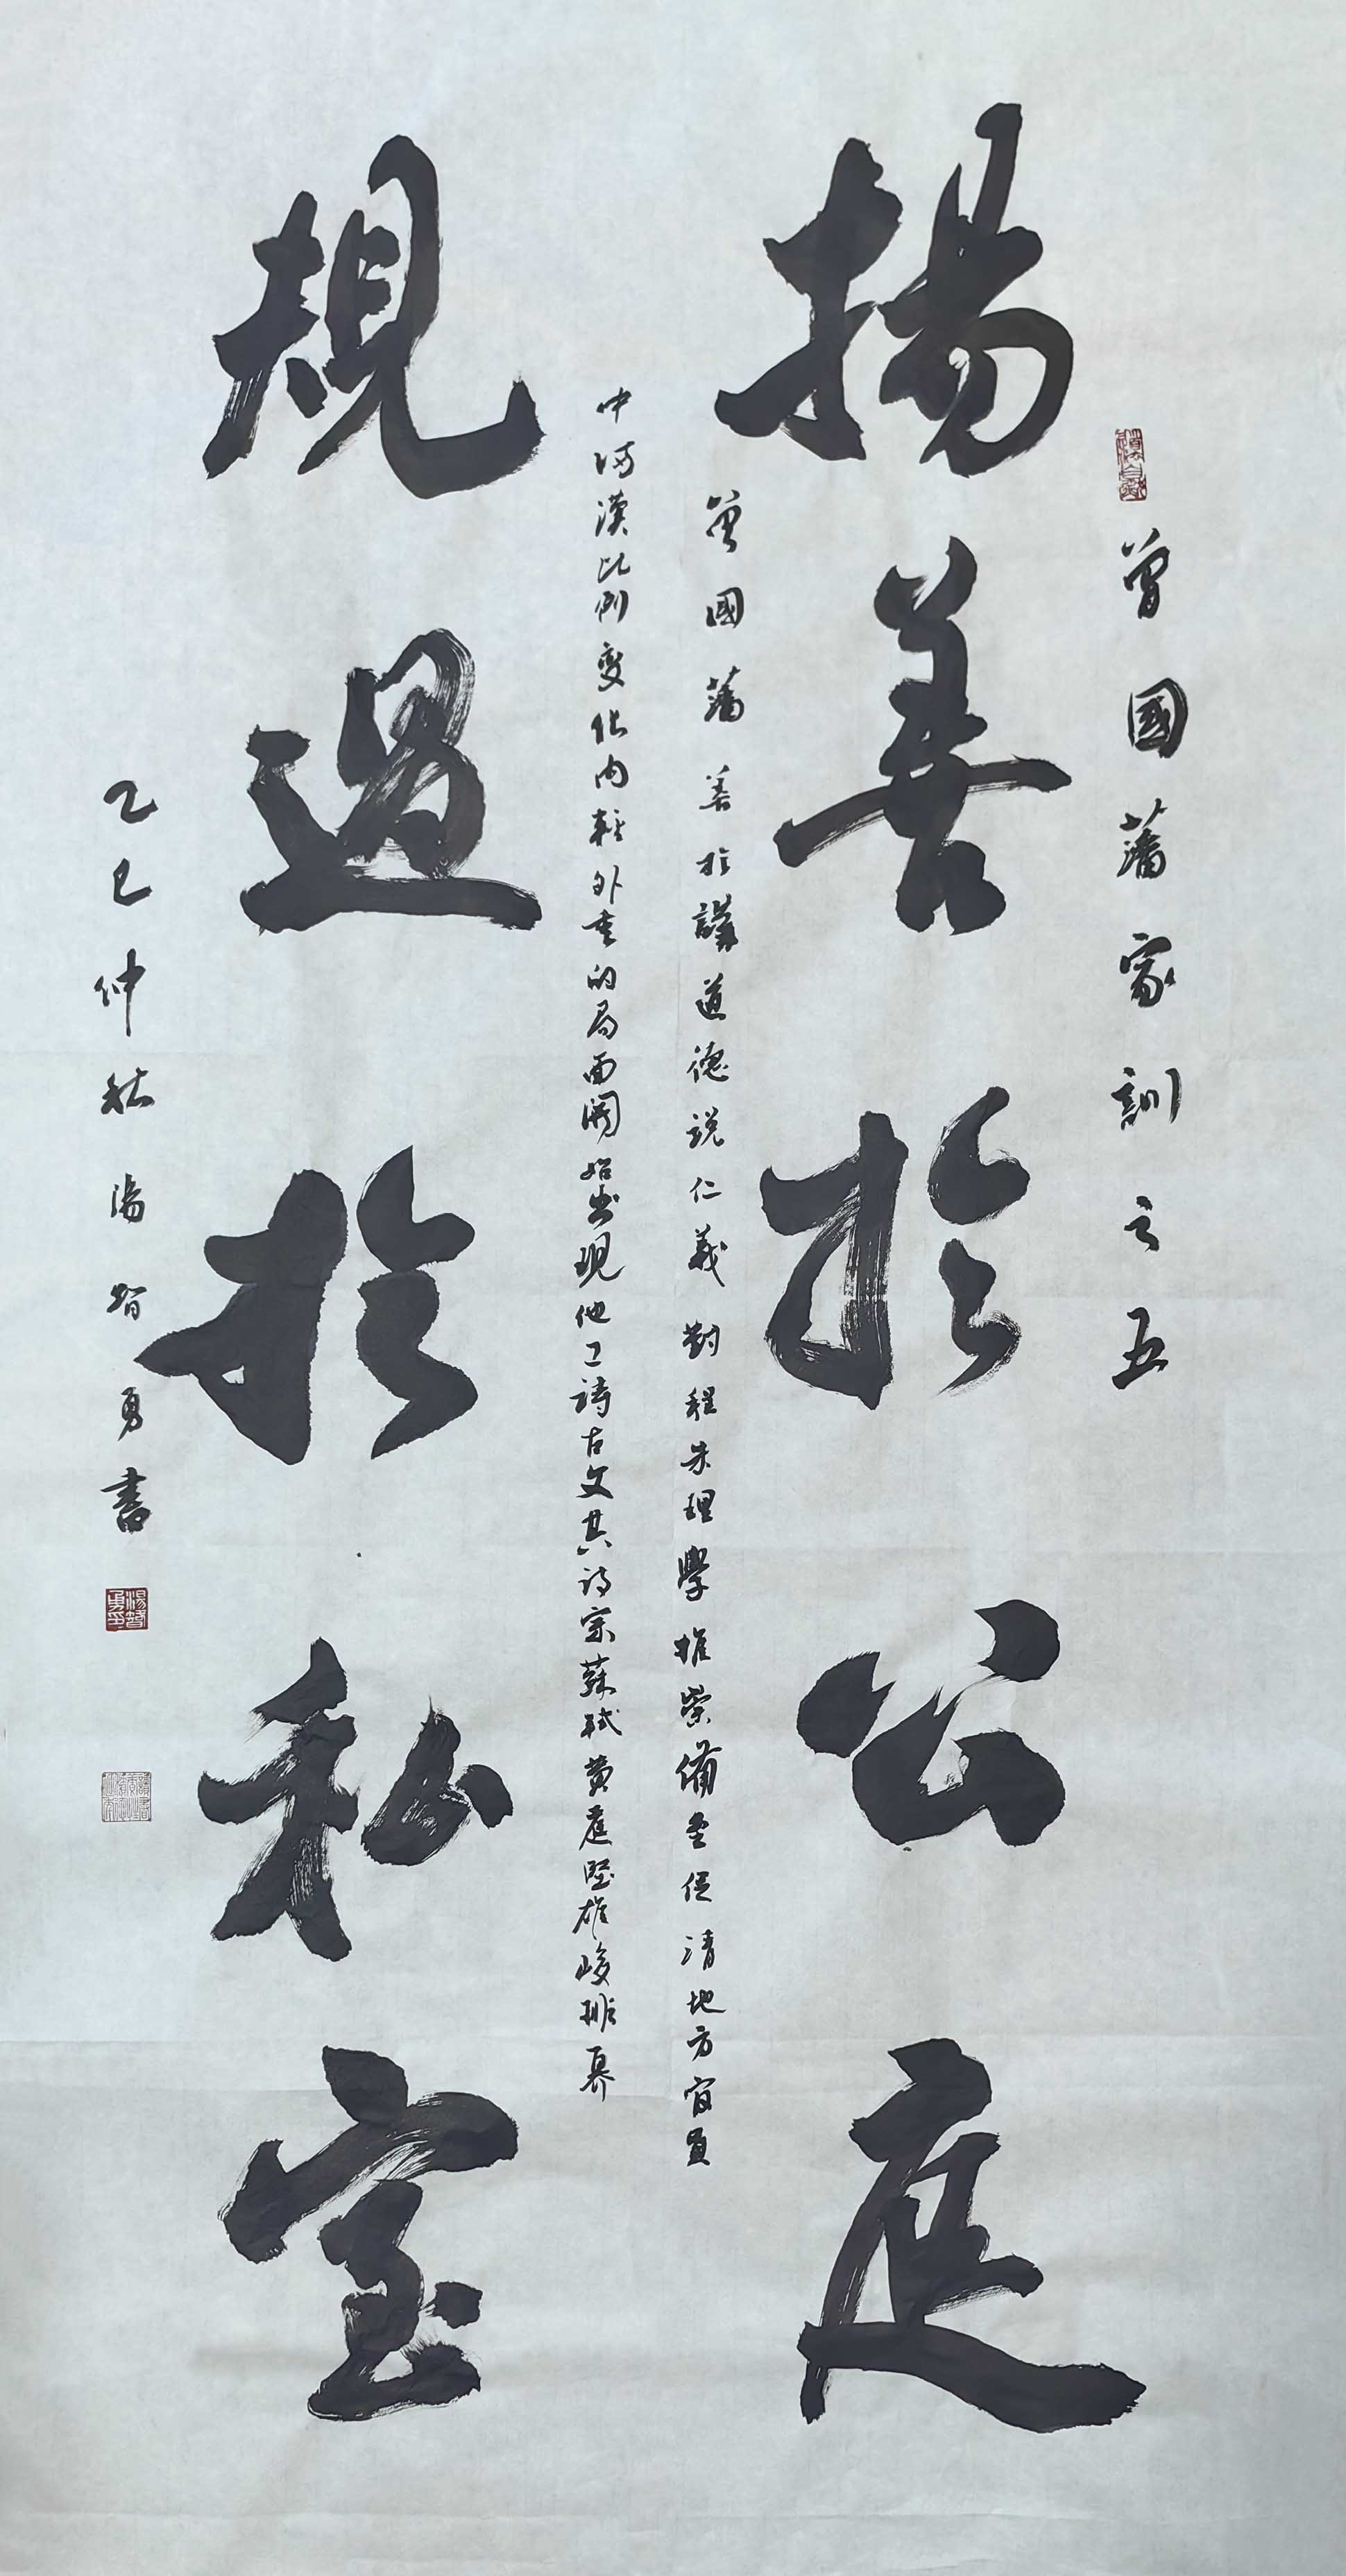 曾國藩家訓之五
揚善於公庭
曾國藩善於講道德說仁義對程朱理學推崇備至從清地方官員
中滿漢比例變化內輕外重的局面開始出現他工詩古文其詩宗蘇軾黃庭堅雄峻排奡
規過於私室
乙巳仲秋湯智勇書
湯智勇印